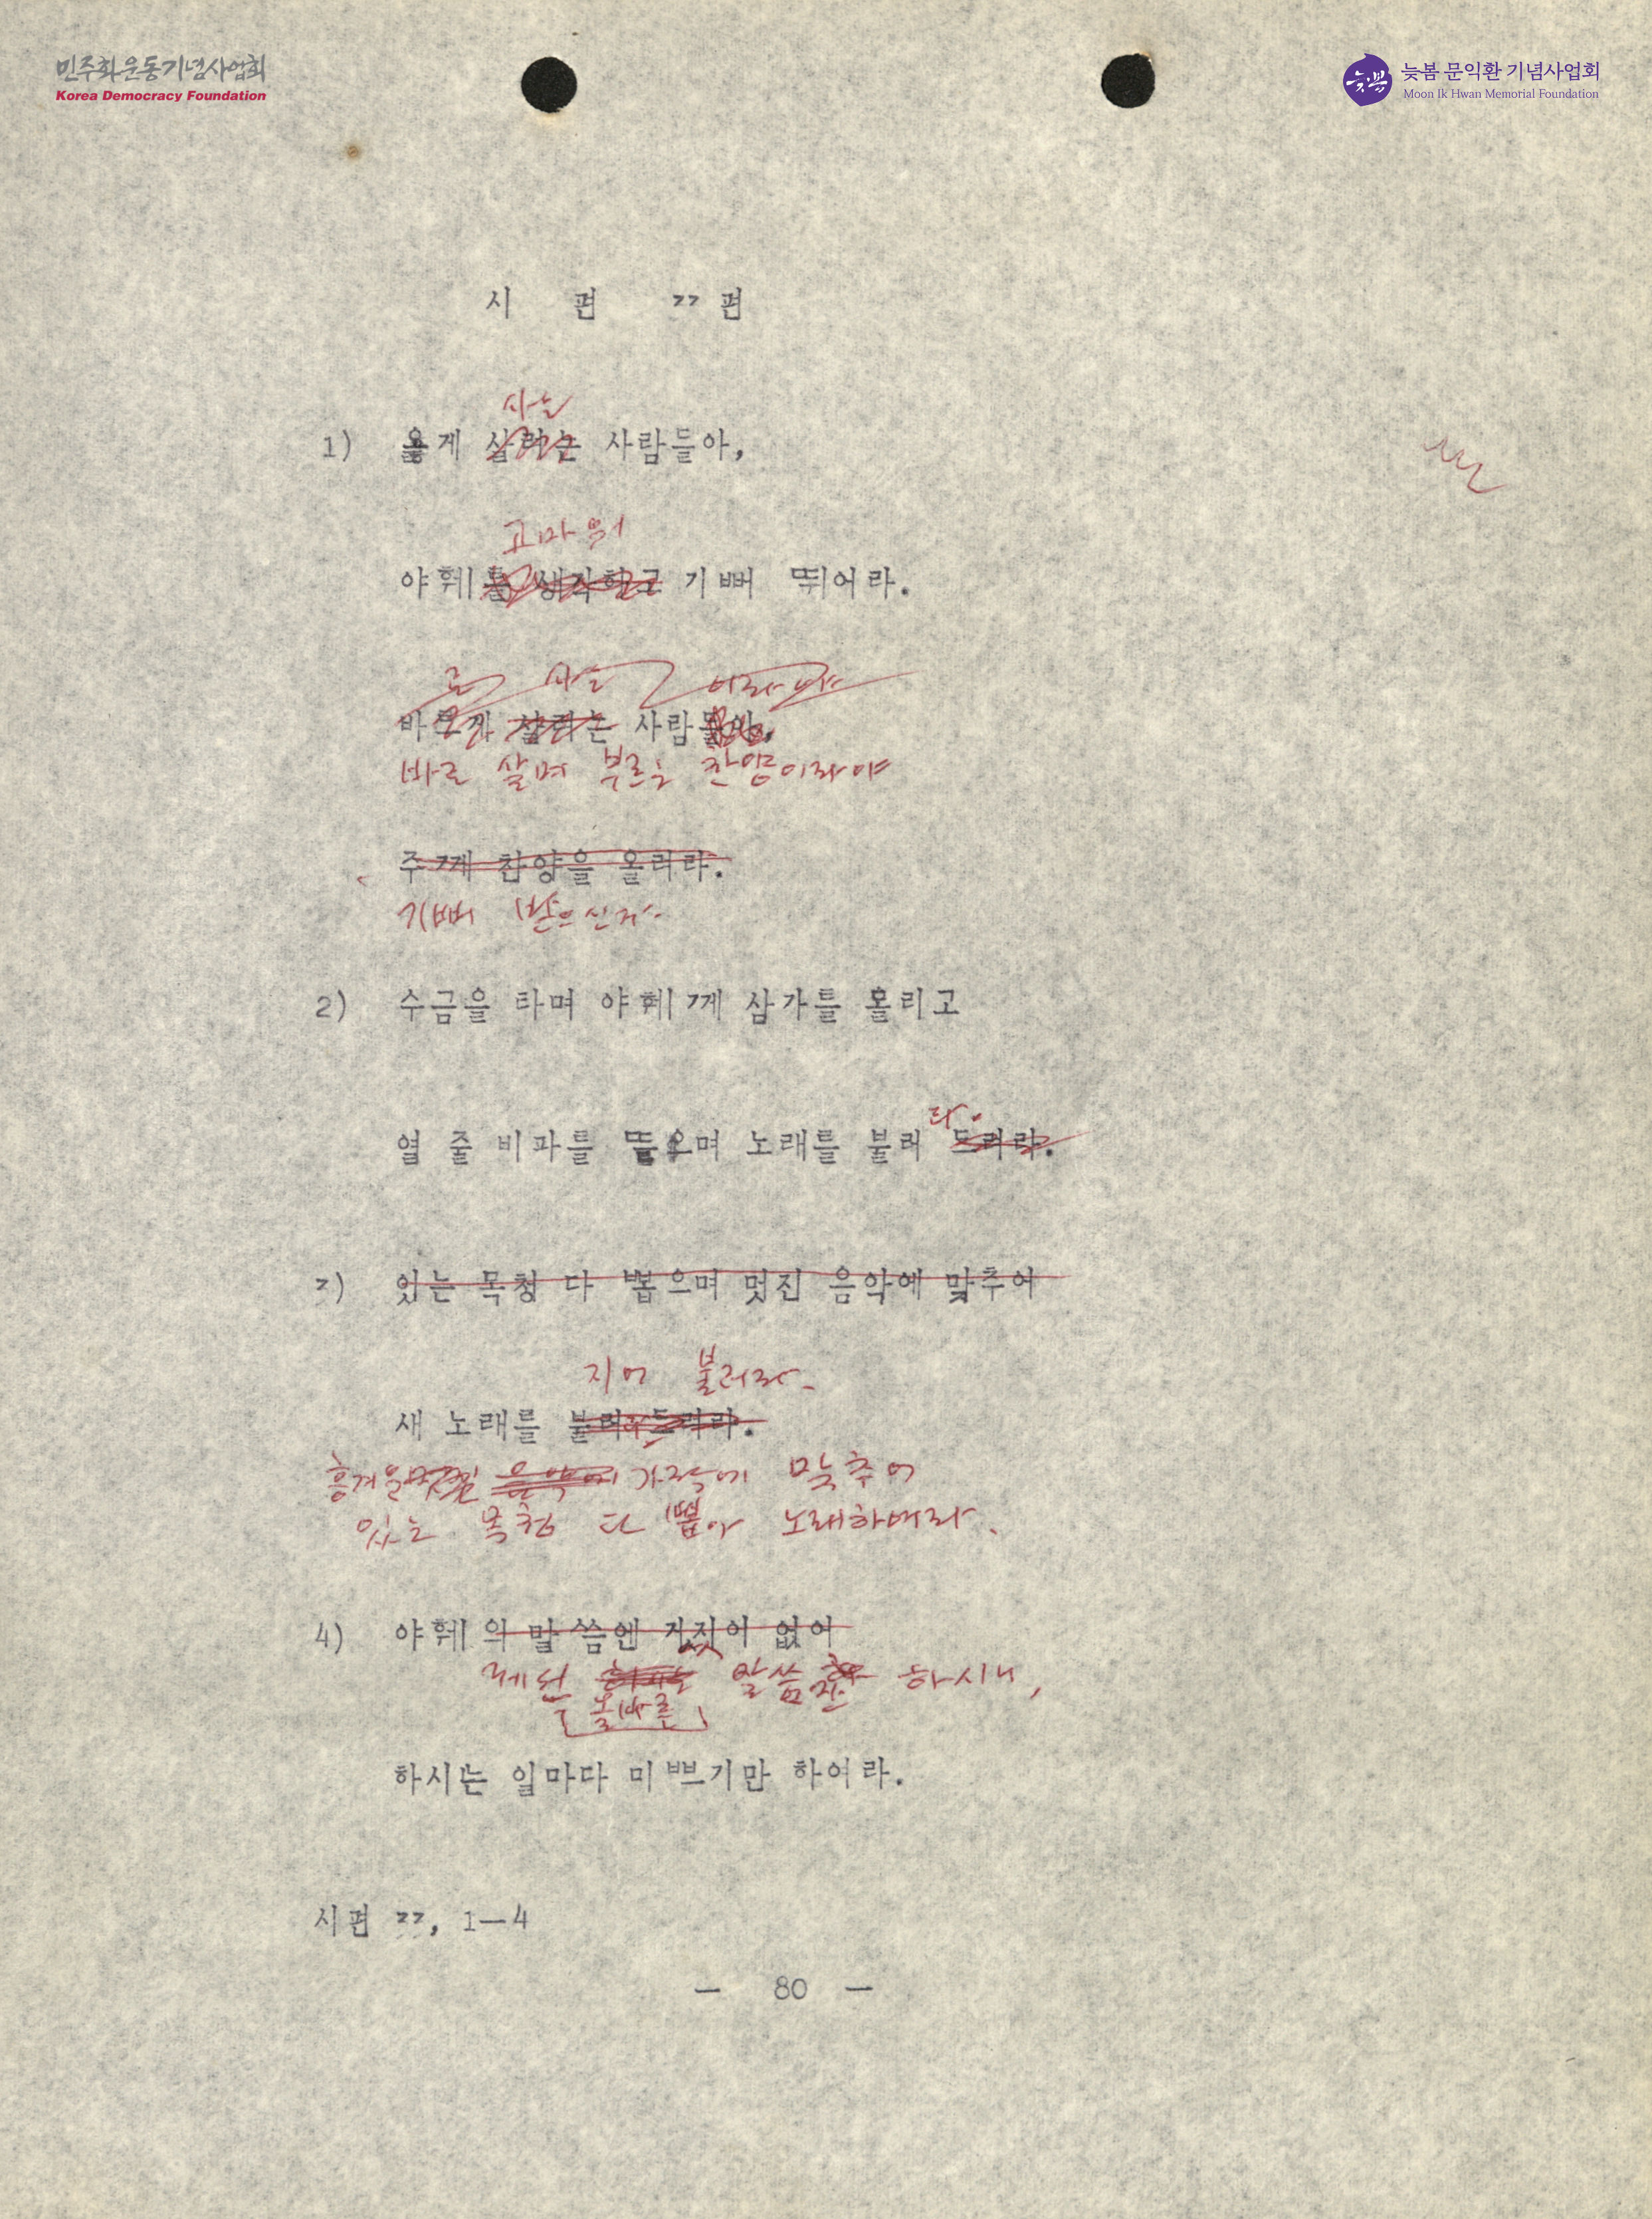 민주화운동기념사업회
Korea Democracy Foundation
늦봄
늦봄 문익환 기념사업회
Moon Ik Hwan Memorial Foundation
시 편 33 편
사는
1) 옳게 살려는 사람들아,
고마워
야훼를 생각하고 기뻐 뛰어라.
사는 이라야
바르게 살려는 사람들아,
바로 살며 부르는 찬양이라야
주께 찬양을 올려라.
기뻐 받으신다.
2) 수금을 타며 야훼께 삼가를 올리고
라.
열 줄 비파를 뜯으며 노래를 불러 드려라.
3) 있는 목청 다 뽑으며 멋진 음악에 맞추어
지어 불러라.
새 노래를 불러 드려라.
흥겨운 음악에 가락에 맞추어
있는 목청 다 뽑아 노래하여라.
4) 야훼의 말씀엔 거짓이 없어
께선 말씀만 하시니,
올바른
하시는 일마다 미쁘기만 하여라.
시편 33, 1—4
— 80 —